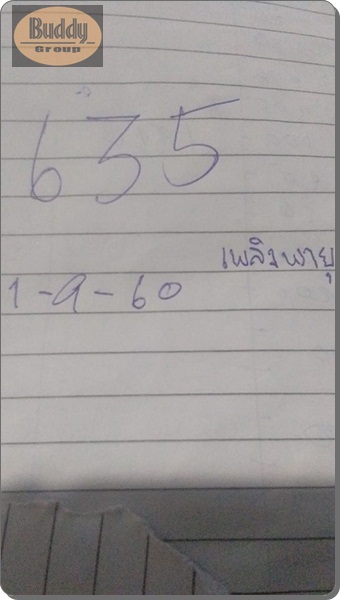 Buddy
Group
635
เพลิงพายุ
1-9-60